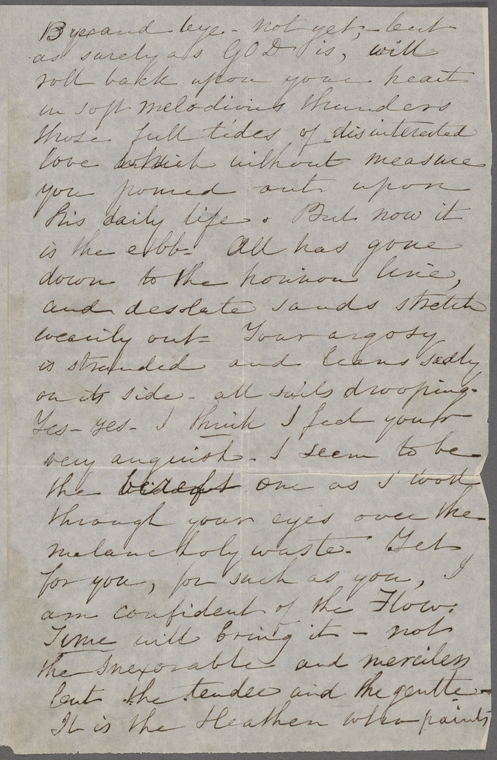 By and bye - not yet, - but
as surely as GOD is, will
roll back upon your heart
in soft melodious thunders
those full tides of disinterested
love which without measure
you poured out upon
his daily life. But now it
is the ebb - All has gone
down to the horizon line,
and desolate sands stretch
wearily out - Your argosy
is stranded and leans sadly
on its side - all sails drooping -
Yes - yes - I think I feel your
very anguish. I seem to be
the bereft one as I look
through your eyes over the
melancholy waste. Yet
for you, for such as you, I
am confident of the Flow.
Time will bring it - not
the Inexorable and merciless
but the tender and the gentle -
It is the Heathen who paints